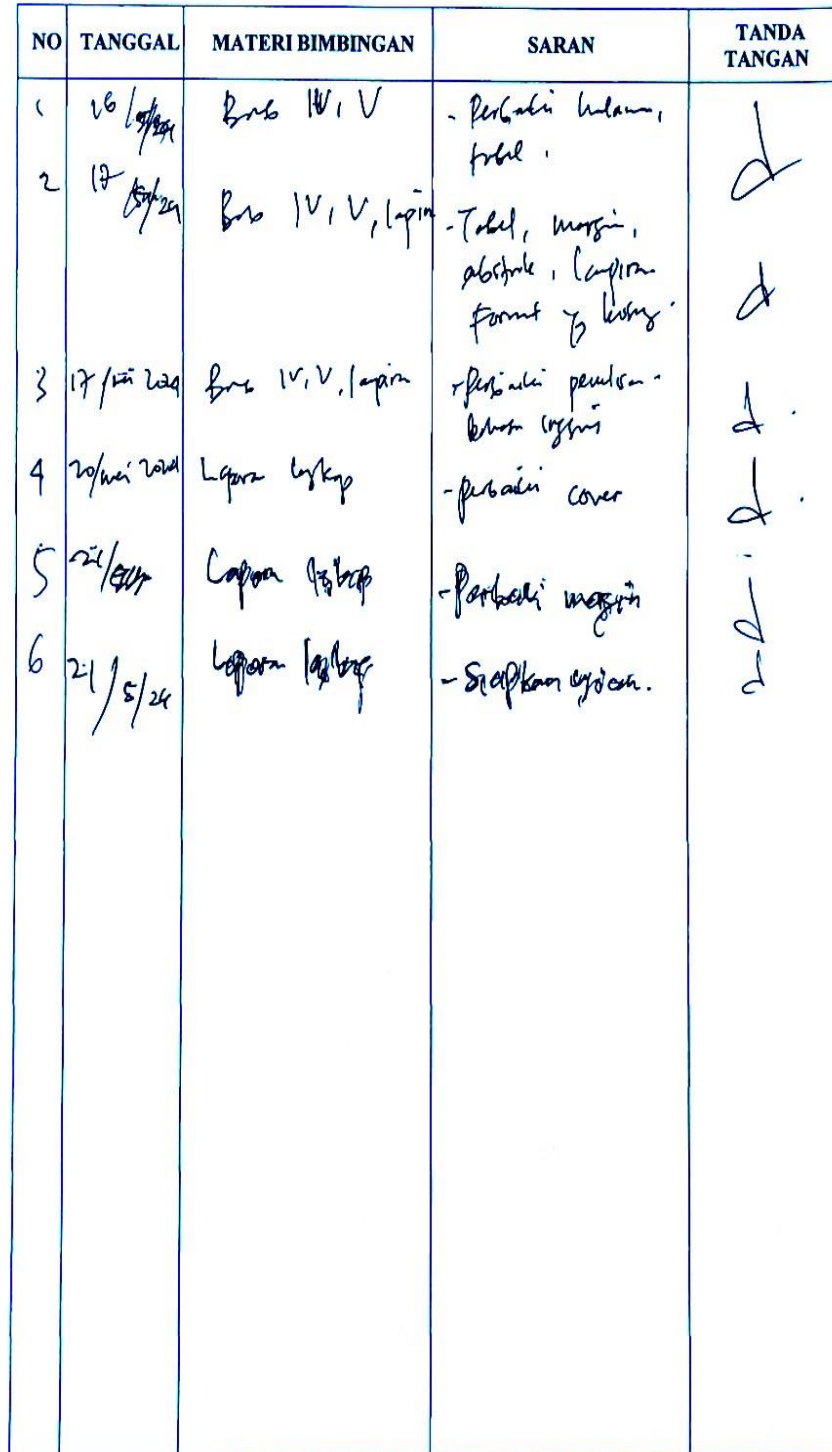 NO TANGGAL MATERI BIMBINGAN SARAN TANDA TANGAN
1 16/ Bab IV, V - Perbaiki halaman,
tabel.
2 17 /24 Bab IV, V, lapira - Tabel, margin,
abstrak, lampiran
Format yg
3 17/mei 2024 Bab IV, V, lapira - Perbaiki penulisan
bahasa inggris
4 20/mei 2024 Laporan lengkap - perbaiki cover
5 21/ Laporan lengkap - Perbaiki margin
6 21/5/24 Laporan lengkap - Siapkan ujian.